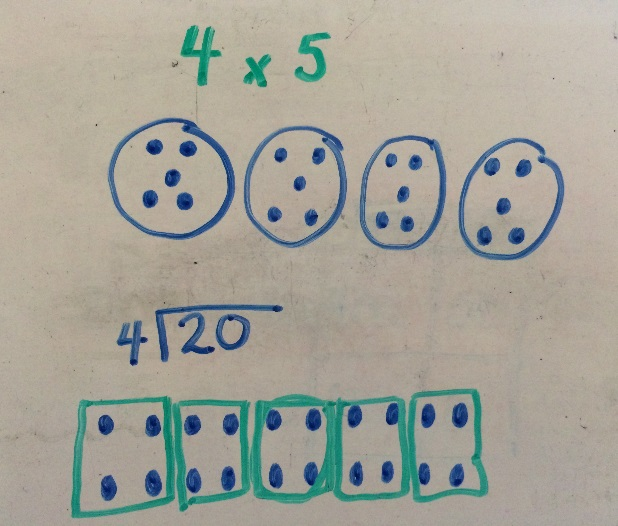 4 x 5
4⟌20